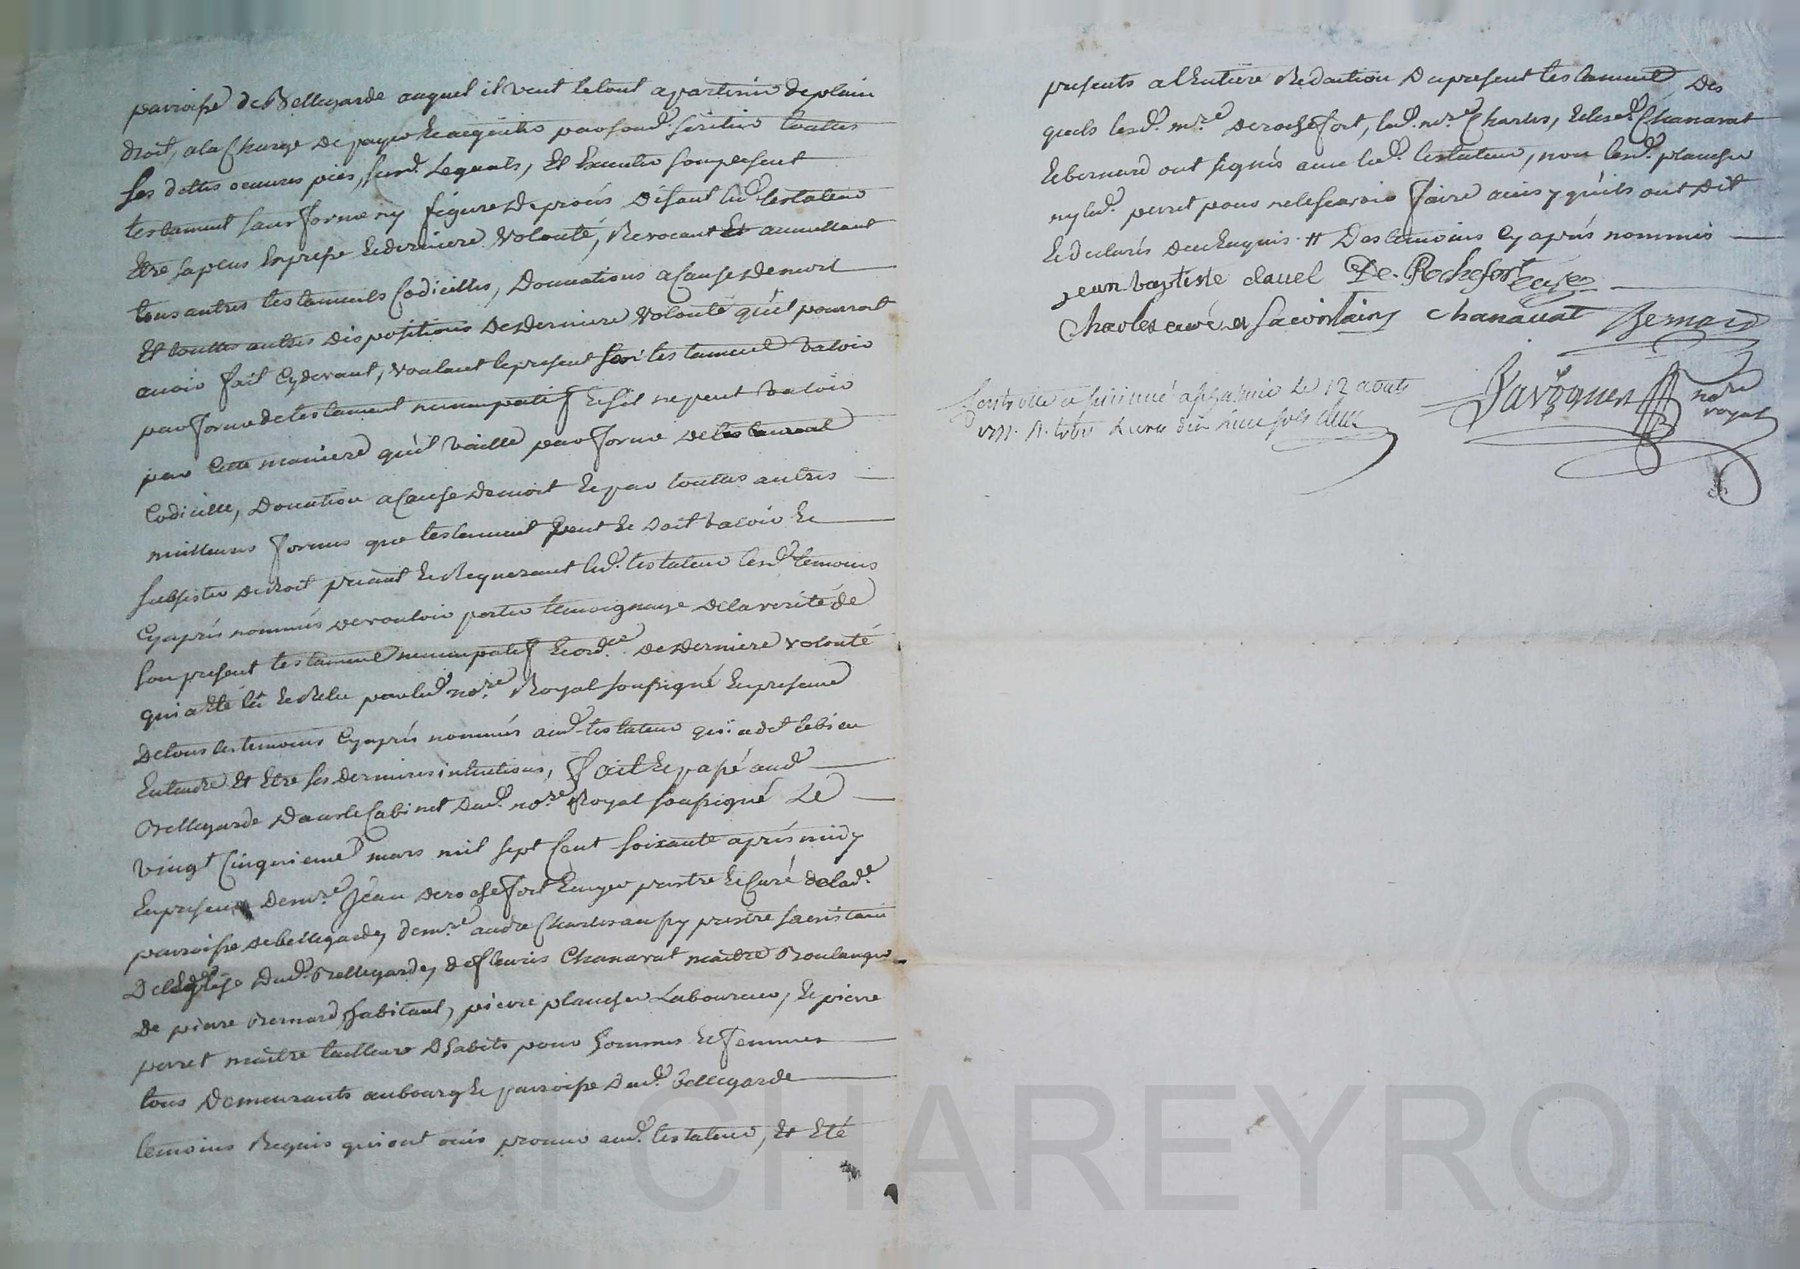 parroisse de Bellegarde auquel il veut le tout apartenir de plain
droit, a la Charge de payer et acquitter par sond. heritier touttes
ses dettes oeuvres pies, sesd. Legats, Et Executer son present
testament sans forme ny figure de procés Disant led. testateur
Etre sa plus Expresse et derniere Volonté, Revocant Et annullant
tous autres testaments Codicilles, Donnations a Cause de mort
Et touttes autres dispositions de derniere Volonté qu'il pourroit
avoir fait Cy devant, voulant le present son testament valoir
par forme de testament nuncupatif Et s'il ne peut valoir
par Cette maniere qu'il vaille par forme de testament
Codicille, Donation a Cause de mort Et par touttes autres
meilleures formes que testament peut Et doit valoir Et
subsister de droit priant Et Requerant led. testateur lesd. temoins
Cy aprés nommés de vouloir porter temoignage de la verité de
son present testament nuncupatif Et ord.ce de derniere volonté
qui a Eté lû Et Relu par led. no.re Royal soussigné En presence
de tous les temoins Cy aprés nommés aud. testateur qui a dit le bien
Entendre Et Etre ses dernieres intentions, fait Et passé aud.
Bellegarde dans le Cabinet dud. no.re Royal soussigné Le
vingt Cinquieme mars mil sept Cent soixante aprés midy
En presence de m.re Jean de rochefort Ecuyer prestre Et Curé de lad.
parroisse de bellegarde, de m.re andre Charles prestre sacristain
De l'Eglise dud. Bellegarde, de fleuris Chanavat maitre Boulanger
De pierre Bernard, habitant, pierre plancher Laboureur, Et pierre
perret maitre tailleur d'habits pour hommes Et femmes
tous Demeurants au bourg Et parroisse dud. bellegarde
temoins Requis qui ont ouis proma aud. testateur, Et Eté
presents a l'Entiere Redaction du present testament, Des
quels lesd. m.re de rochefort, lad. m.re Charles, Et lesd. Chanavat
Et bernard ont signés avec led. testateur, non lesd. plancher
ny led. perret pour ne le scavoir faire ainsy qu'ils ont dit
Et declarés de ce Enquis. # Des temoins Cy aprés nommés
jean baptiste clavel De Rochefort
Charles curé et sacristain chanavat Bernard
Controllé a le 12 avril
Favrguen no.re royal
Pascal CHAREYRON